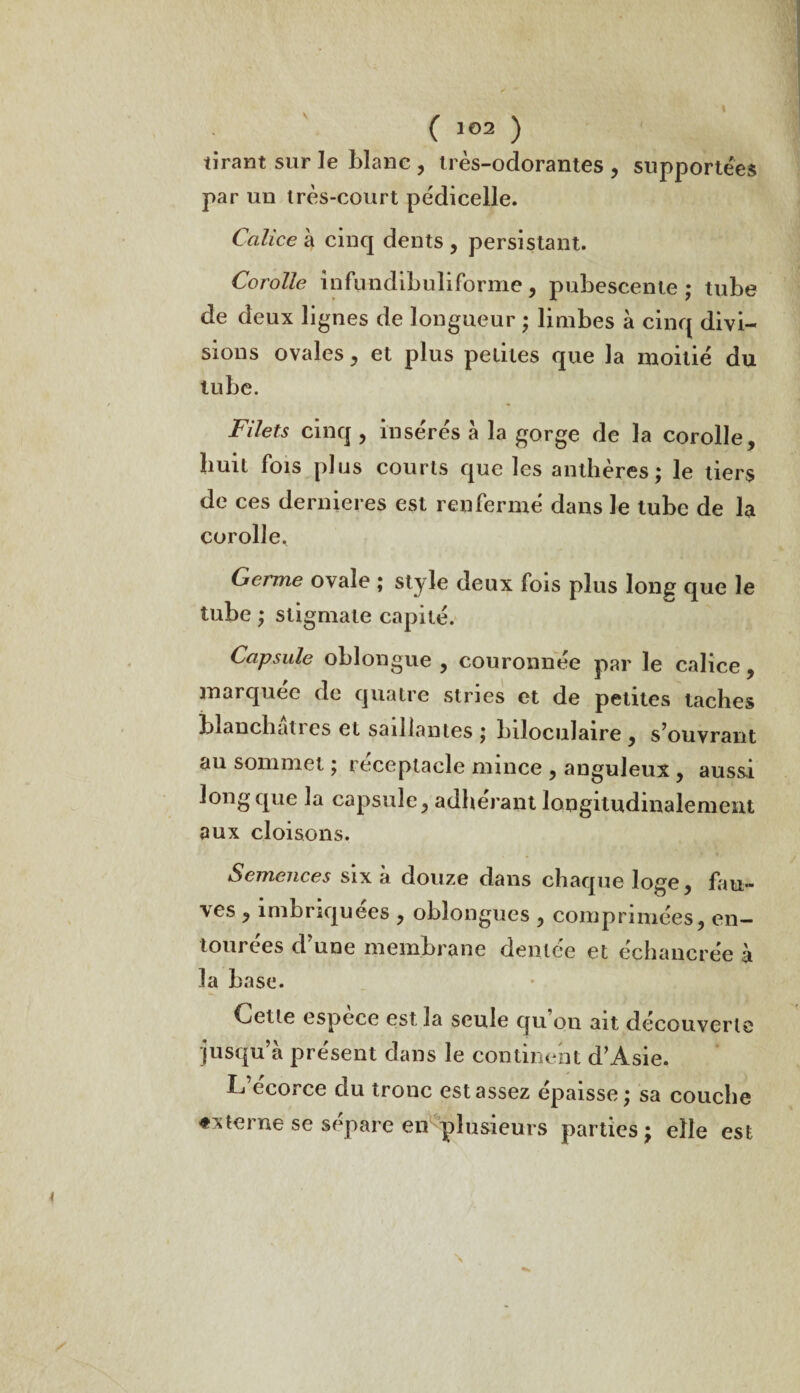 ( 102 )
tirant sur le blanc , très-odorantes , supportées
par un très-court pédicelle.
Calice à cinq dents , persistant.
Corolle infundibuliforme , pubescente ; tube
de deux lignes de longueur ; limbes à cinq divi-
sions ovales , et plus petites que la moitié du
tube.
Filets cinq , insérés à la gorge de la corolle,
huit fois plus courts que les anthères ; le tiers
de ces dernieres est renfermé dans le tube de la
corolle.
Germe ovale ; style deux fois plus long que le
tube ; stigmate capité.
Capsule oblongue , couronnée par le calice ,
marquée de quatre stries et de petites taches
blanchâtres et saillantes ; biloculaire , s'ouvrant
au sommet ; réceptacle mince , anguleux , aussi
long que la capsule, adhérant longitudinalement
aux cloisons.
Semences six à douze dans chaque loge, fau-
ves , imbriquées , oblongues , comprimées, en-
tourées d'une membrane dentée et échancrée à
la base.
Cette espèce est la seule qu'on ait découverte
jusqu'à présent dans le continent d'Asie.
L'écorce du tronc est assez épaisse ; sa couche
externe se sépare en plusieurs parties ; elle est